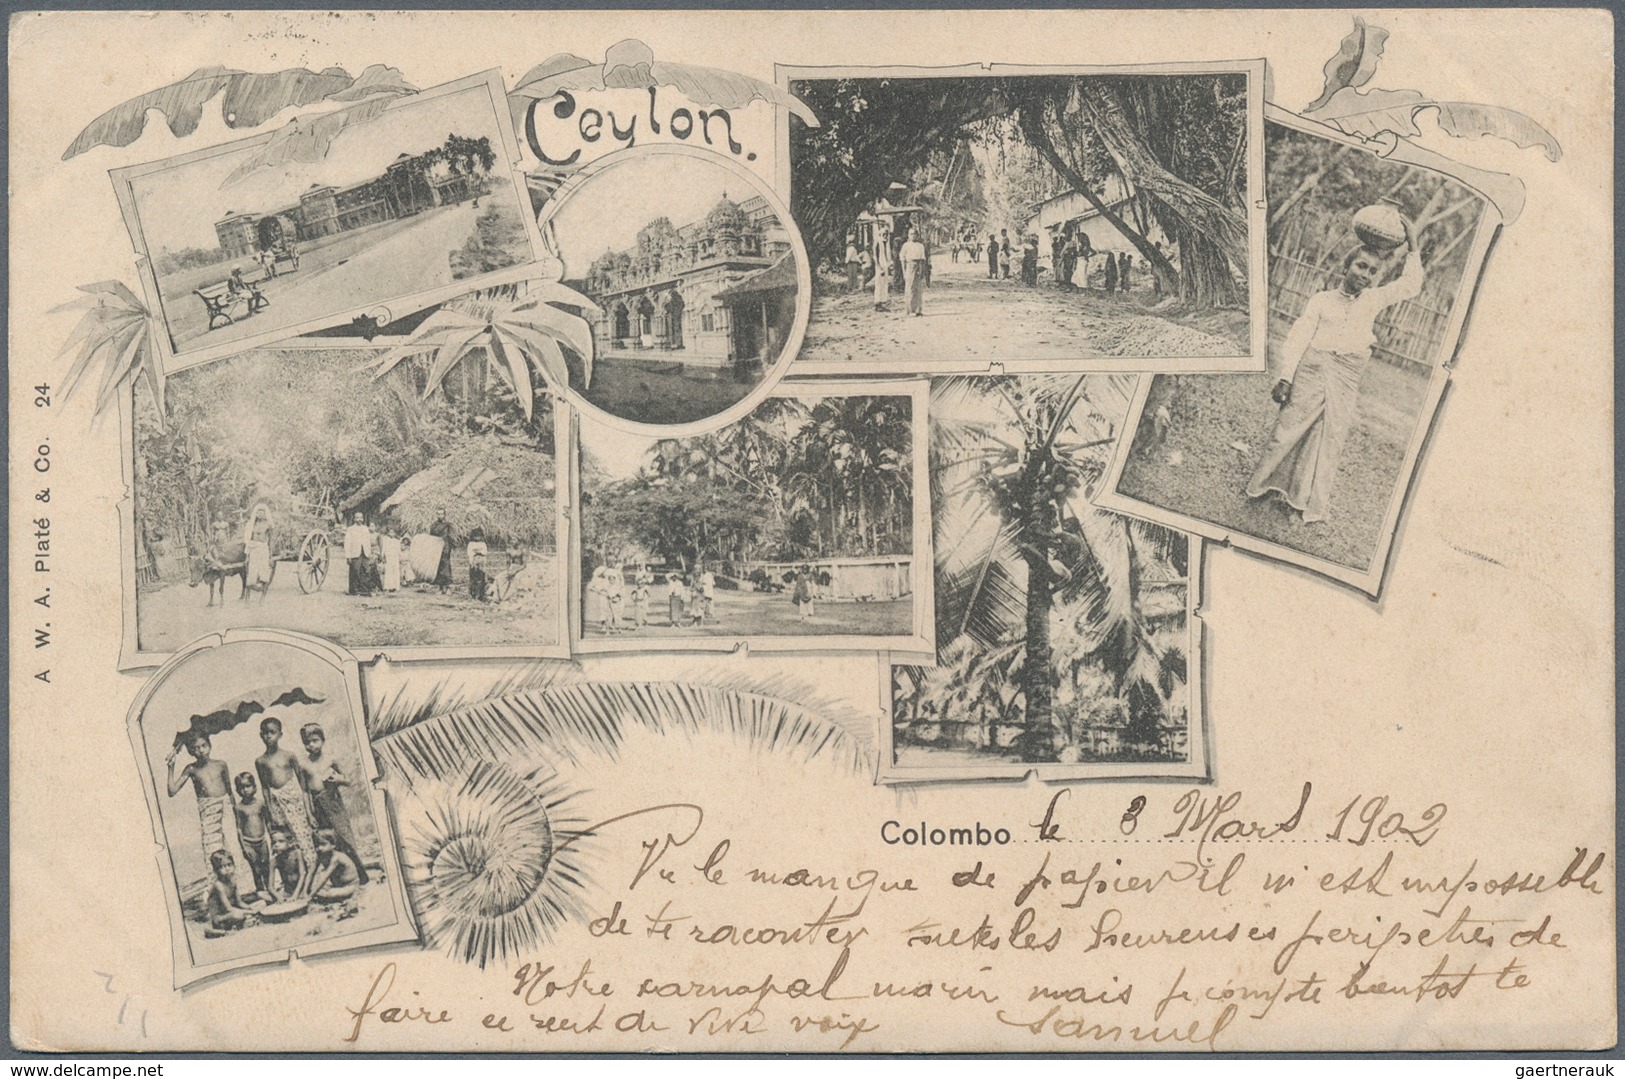 Ceylon.
A W. A. Platé & Co. 24
Colombo le 3 Mars 1902
Vu le manque de papier il m'est impossible
de te raconter les heureuses peripeties de
Notre carnaval marin mais je compte bientot te
faire ce recit de vive voix Samuel
delcampe.net
gaertnerauk